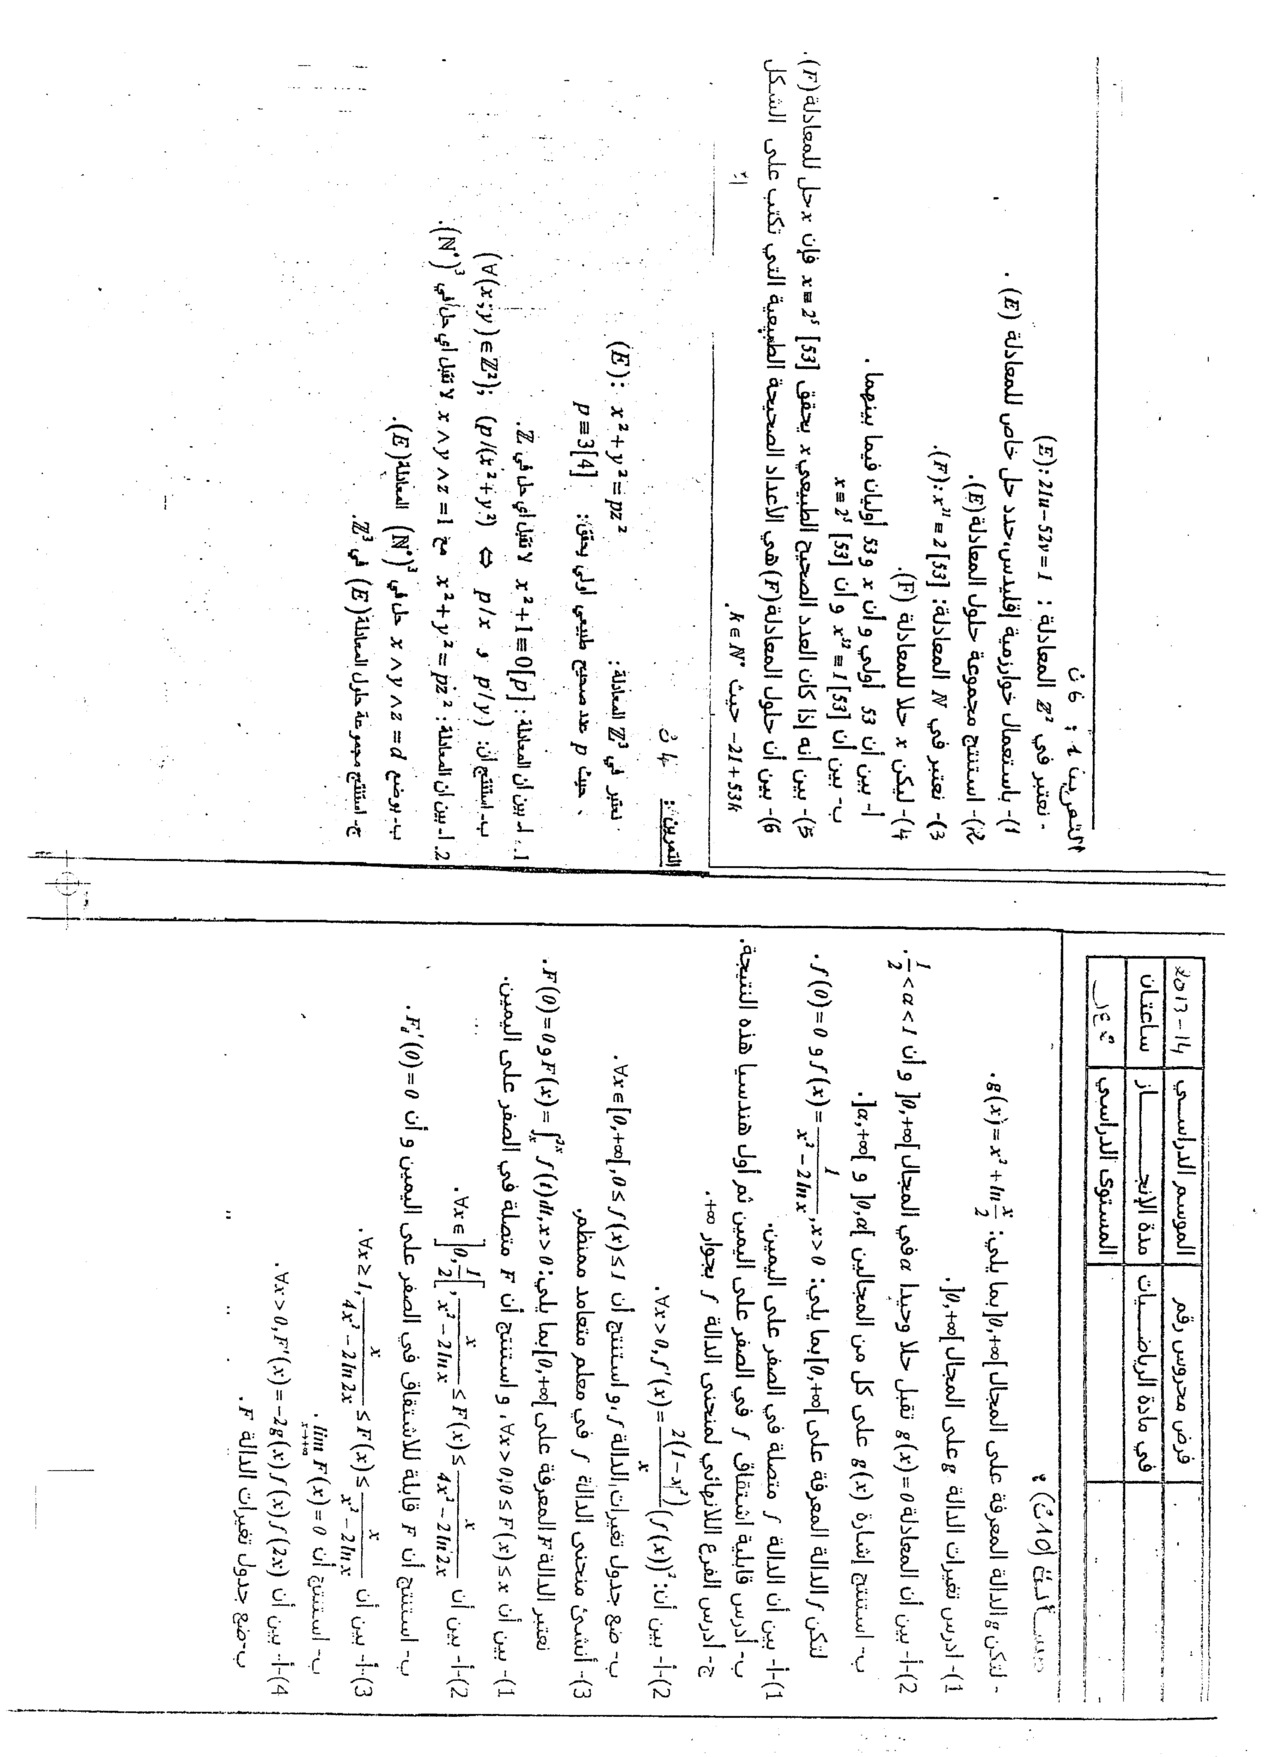 2013-14
الموسم الدراسي
فرض محروس رقم
ساعتان
مدة الإنجـــــــاز
في مادة الرياضـــيات
المستوى الدراسي
مســـألـة (10 ن) :
- لتكن g الدالة المعرفة على المجال ]0,+∞[ بما يلي: g(x)=x²+ln x/2.
1)- ادرس تغيرات الدالة g على المجال ]0,+∞[.
2)-أ- بين أن المعادلة g(x)=0 تقبل حلا وحيدا α في المجال ]0,+∞[ وأن 1/2<α<1.
ب- استنتج إشارة g(x) على كل من المجالين ]0,α[ و ]α,+∞[.
لتكن f الدالة المعرفة على [0,+∞[ بما يلي: f(x)=1/(x²-2lnx), x>0 و f(0)=0.
1)-أ- بين أن الدالة f متصلة في الصفر على اليمين.
ب- أدرس قابلية اشتقاق f في الصفر على اليمين ثم أول هندسيا هذه النتيجة.
ج- أدرس الفرع اللانهائي لمنحنى الدالة f بجوار +∞.
2)-أ- بين أن: ∀x>0, f'(x)=2(1-x²)/x (f(x))².
ب- ضع جدول تغيرات الدالة f، و استنتج أن ∀x∈[0,+∞[, 0≤f(x)≤1.
3)- أنشئ منحنى الدالة f في معلم متعامد ممنظم.
نعتبر الدالة F المعرفة على [0,+∞[ بما يلي: F(x)=∫ₓ²ˣ f(t)dt, x>0 و F(0)=0.
1)- بين أن ∀x>0, 0≤F(x)≤x، و استنتج أن F متصلة في الصفر على اليمين.
2)-أ- بين أن ∀x∈]0,1/2[, x/(x²-2lnx) ≤F(x)≤ x/(4x²-2ln2x).
ب- استنتج أن F قابلة للاشتقاق في الصفر على اليمين و أن F'd(0)=0.
3)-أ- بين أن ∀x≥1, x/(4x²-2ln2x) ≤F(x)≤ x/(x²-2lnx).
ب- استنتج أن lim F(x)=0 x→+∞.
4)-أ- بين أن ∀x>0, F'(x)=-2g(x)f(x)f(2x).
ب- ضع جدول تغيرات الدالة F.
التمرين 1 : 6 ن
- نعتبر في Z² المعادلة : (E):21u-52v=1
1)- باستعمال خوارزمية إقليدس،حدد حل خاص للمعادلة (E).
2)- استنتج مجموعة حلول المعادلة (E).
3)- نعتبر في N المعادلة: (F):x²¹≡2[53].
4)- ليكن x حلا للمعادلة (F).
أ- بين أن 53 أولي و أن x و53 أوليان فيما بينهما .
ب- بين أن x⁵²≡1[53] و أن x≡2⁵[53]
5)- بين أنه إذا كان العدد الصحيح الطبيعي x يحقق x≡2⁵[53] فإن x حل للمعادلة (F).
6)- بين أن حلول المعادلة (F) هي الأعداد الصحيحة الطبيعية التي تكتب على الشكل
-21+53k حيث k∈N*.
التمرين: 4 ن
نعتبر في Z³ المعادلة: (E): x²+y²=pz²
، حيث p عدد صحيح طبيعي أولي يحقق: p≡3[4]
1. أ- بين أن المعادلة: x²+1≡0[p] لا تقبل أي حل في Z.
ب- استنتج أن: (∀(x;y)∈Z²); (p/(x²+y²) ⇔ p/x و p/y)
2. أ- بين أن المعادلة: x²+y²=pz² مع x∧y∧z=1 لا تقبل أي حل في (N*)³.
ب- بوضع x∧y∧z=d حل في (N*)³ المعادلة (E).
ج- استنتج مجموعة حلول المعادلة (E) في Z³.